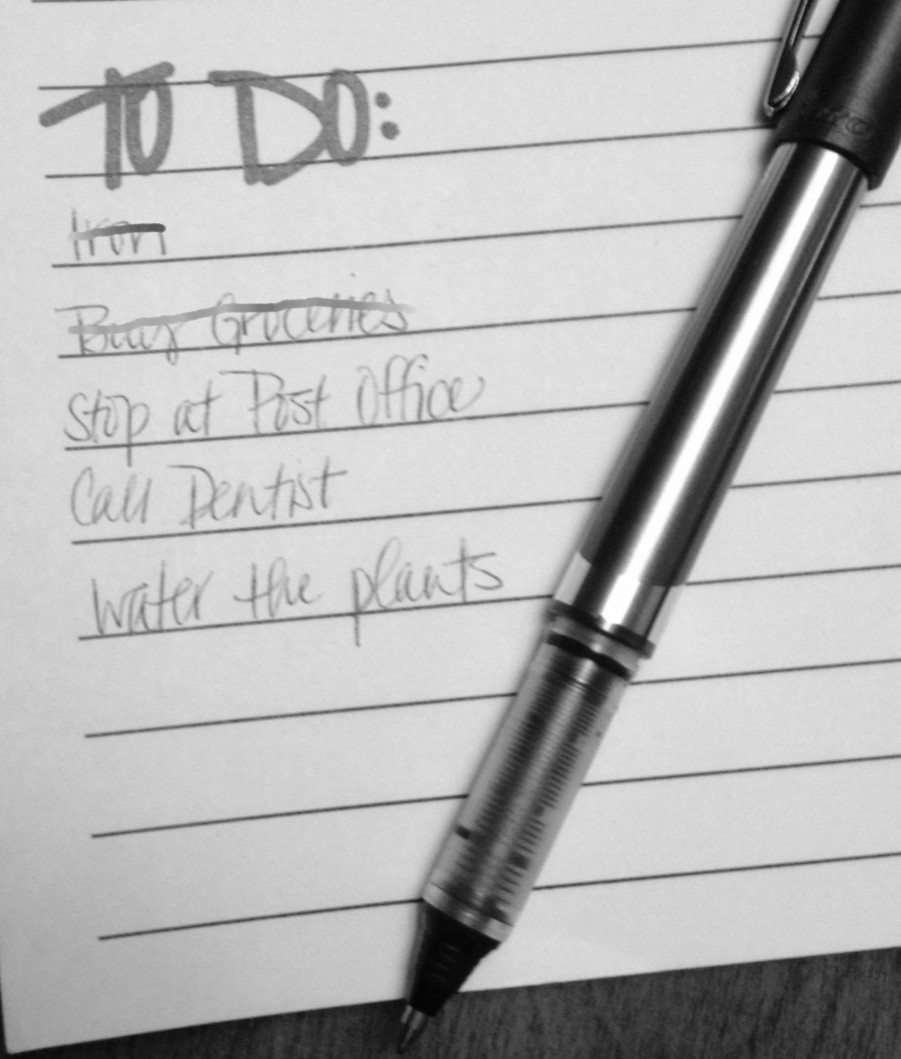 TO DO:
Iron
Buy Groceries
Stop at Post Office
Call Dentist
water the plants